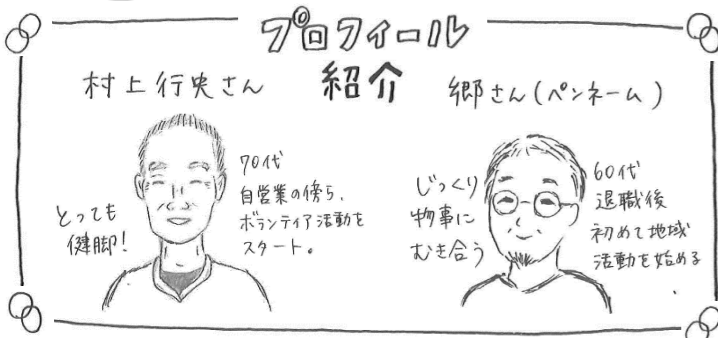 プロフィール
紹介
村上行央さん
とっても
健脚!
70代
自営業の傍ら、
ボランティア活動を
スタート。
郷さん(ペンネーム)
じっくり
物事に
むき合う
60代
退職後
初めて地域
活動を始める